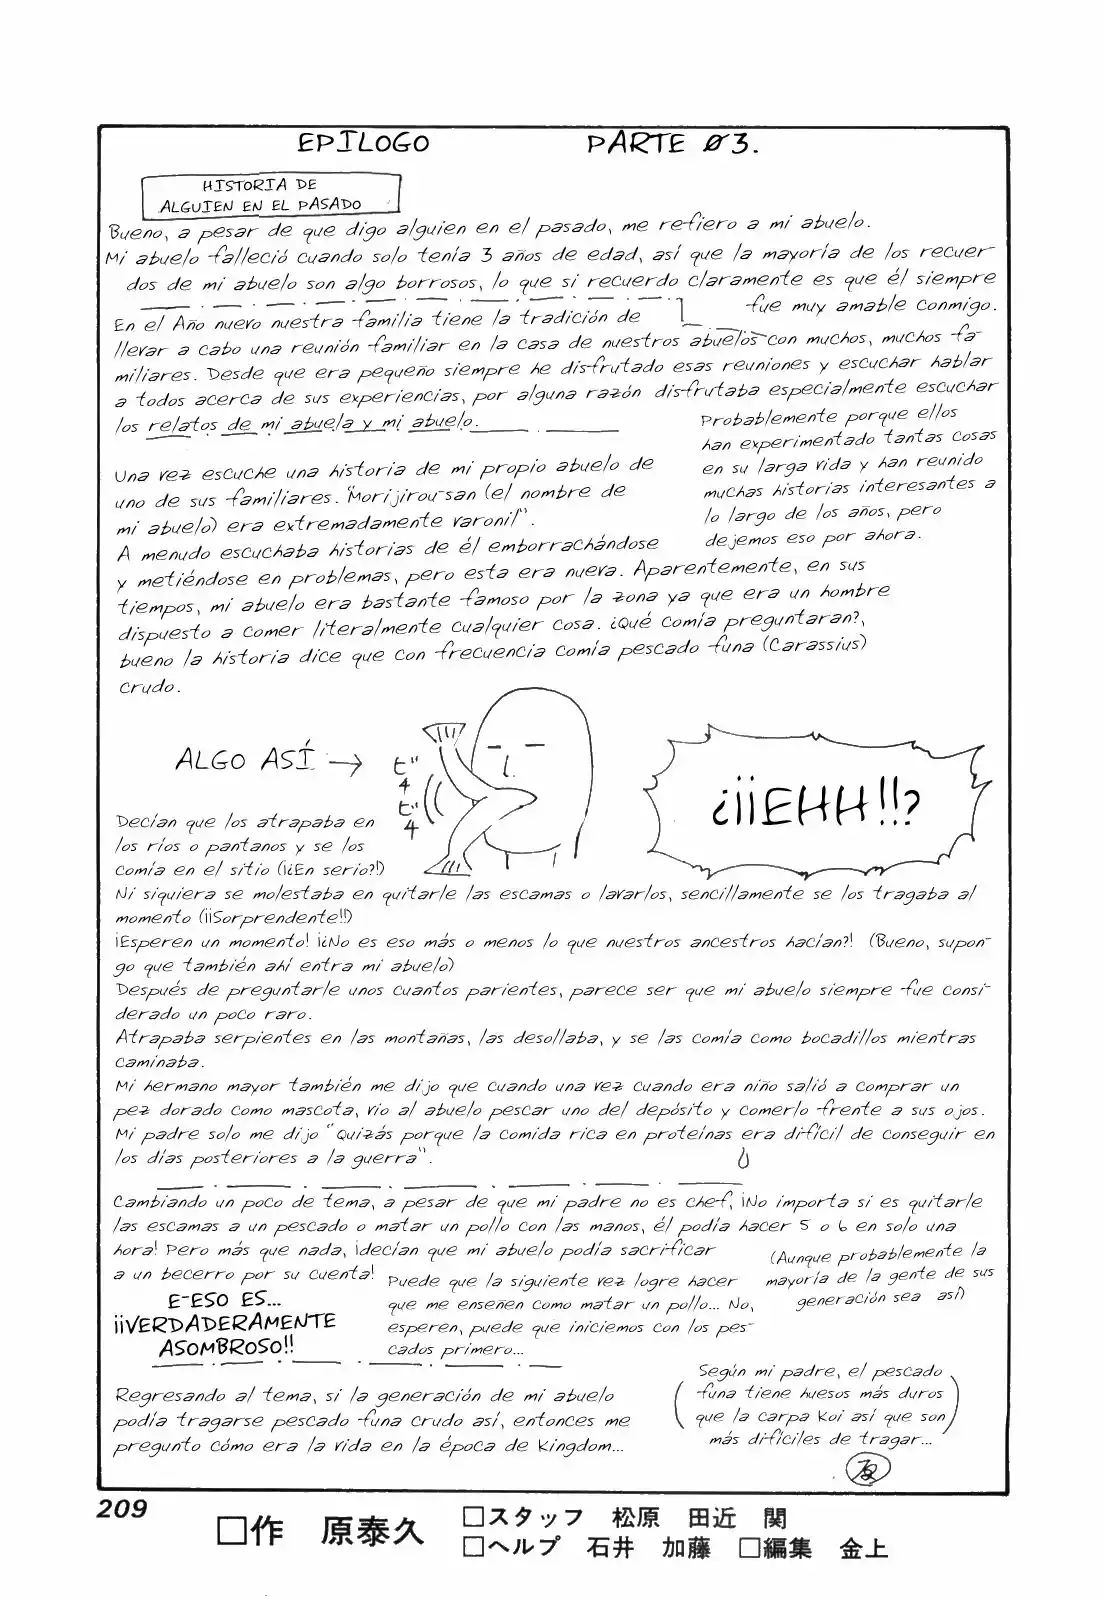 EPILOGO PARTE 03.
HISTORIA DE
ALGUIEN EN EL PASADO
Bueno, a pesar de que digo alguien en el pasado, me refiero a mi abuelo.
Mi abuelo falleció cuando solo tenía 3 años de edad, así que la mayoría de los recuer-
dos de mi abuelo son algo borrosos, lo que si recuerdo claramente es que él siempre
fue muy amable conmigo.
En el Año nuevo nuestra familia tiene la tradición de
llevar a cabo una reunión familiar en la casa de nuestros abuelos con muchos, muchos fa-
miliares. Desde que era pequeño siempre he disfrutado esas reuniones y escuchar hablar
a todos acerca de sus experiencias, por alguna razón disfrutaba especialmente escuchar
los relatos de mi abuela y mi abuelo.
Probablemente porque ellos
han experimentado tantas cosas
en su larga vida y han reunido
muchas historias interesantes a
lo largo de los años, pero
dejemos eso por ahora.
Una vez escuche una historia de mi propio abuelo de
uno de sus familiares. "Morijirou-san (el nombre de
mi abuelo) era extremadamente varonil".
A menudo escuchaba historias de él emborrachándose
y metiéndose en problemas, pero esta era nueva. Aparentemente, en sus
tiempos, mi abuelo era bastante famoso por la zona ya que era un hombre
dispuesto a comer literalmente cualquier cosa. ¿Qué comía preguntaran?,
bueno la historia dice que con frecuencia comía pescado funa (Carassius)
crudo.
ALGO ASÍ →
ビチ
ビチ
¿¡¡EHH!!?
Decían que los atrapaba en
los ríos o pantanos y se los
comía en el sitio (¡¿En serio?!)
Ni siquiera se molestaba en quitarle las escamas o lavarlos, sencillamente se los tragaba al
momento (¡¡Sorprendente!!)
¡Esperen un momento! ¡¿No es eso más o menos lo que nuestros ancestros hacían?! (Bueno, supon-
go que también ahí entra mi abuelo)
Después de preguntarle unos cuantos parientes, parece ser que mi abuelo siempre fue consi-
derado un poco raro.
Atrapaba serpientes en las montañas, las desollaba, y se las comía como bocadillos mientras
caminaba.
Mi hermano mayor también me dijo que cuando una vez cuando era niño salió a comprar un
pez dorado como mascota, vio al abuelo pescar uno del depósito y comerlo frente a sus ojos.
Mi padre solo me dijo "Quizás porque la comida rica en proteínas era difícil de conseguir en
los días posteriores a la guerra".
Cambiando un poco de tema, a pesar de que mi padre no es chef, ¡No importa si es quitarle
las escamas a un pescado o matar un pollo con las manos, él podía hacer 5 o 6 en solo una
hora! Pero más que nada, ¡decían que mi abuelo podía sacrificar
a un becerro por su cuenta!
(Aunque probablemente la
mayoría de la gente de sus
generación sea así)
E-ESO ES...
¡¡VERDADERAMENTE
ASOMBROSO!!
Puede que la siguiente vez logre hacer
que me enseñen como matar un pollo... No,
esperen, puede que iniciemos con los pes-
cados primero...
Regresando al tema, si la generación de mi abuelo
podía tragarse pescado funa crudo así, entonces me
pregunto cómo era la vida en la época de Kingdom...
(Según mi padre, el pescado
funa tiene huesos más duros
que la carpa Koi así que son
más difíciles de tragar...)
209
□作 原泰久
□スタッフ 松原 田近 関
□ヘルプ 石井 加藤 □編集 金上